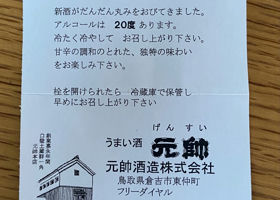 新酒がだんだん丸みをおびてきました。
アルコールは 20度 あります。
冷たく冷やして お召し上がり下さい
甘辛の調和のとれた、独特の味わい
をお楽しみ下さい。
栓を開けられたら 冷蔵庫で保管し
早めにお召し上がり下さい
げんすい
うまい酒 元帥
元帥酒造株式会社
鳥取県倉吉市東仲町
フリーダイヤル
創業嘉永年間
白壁土蔵群一角
元帥本店